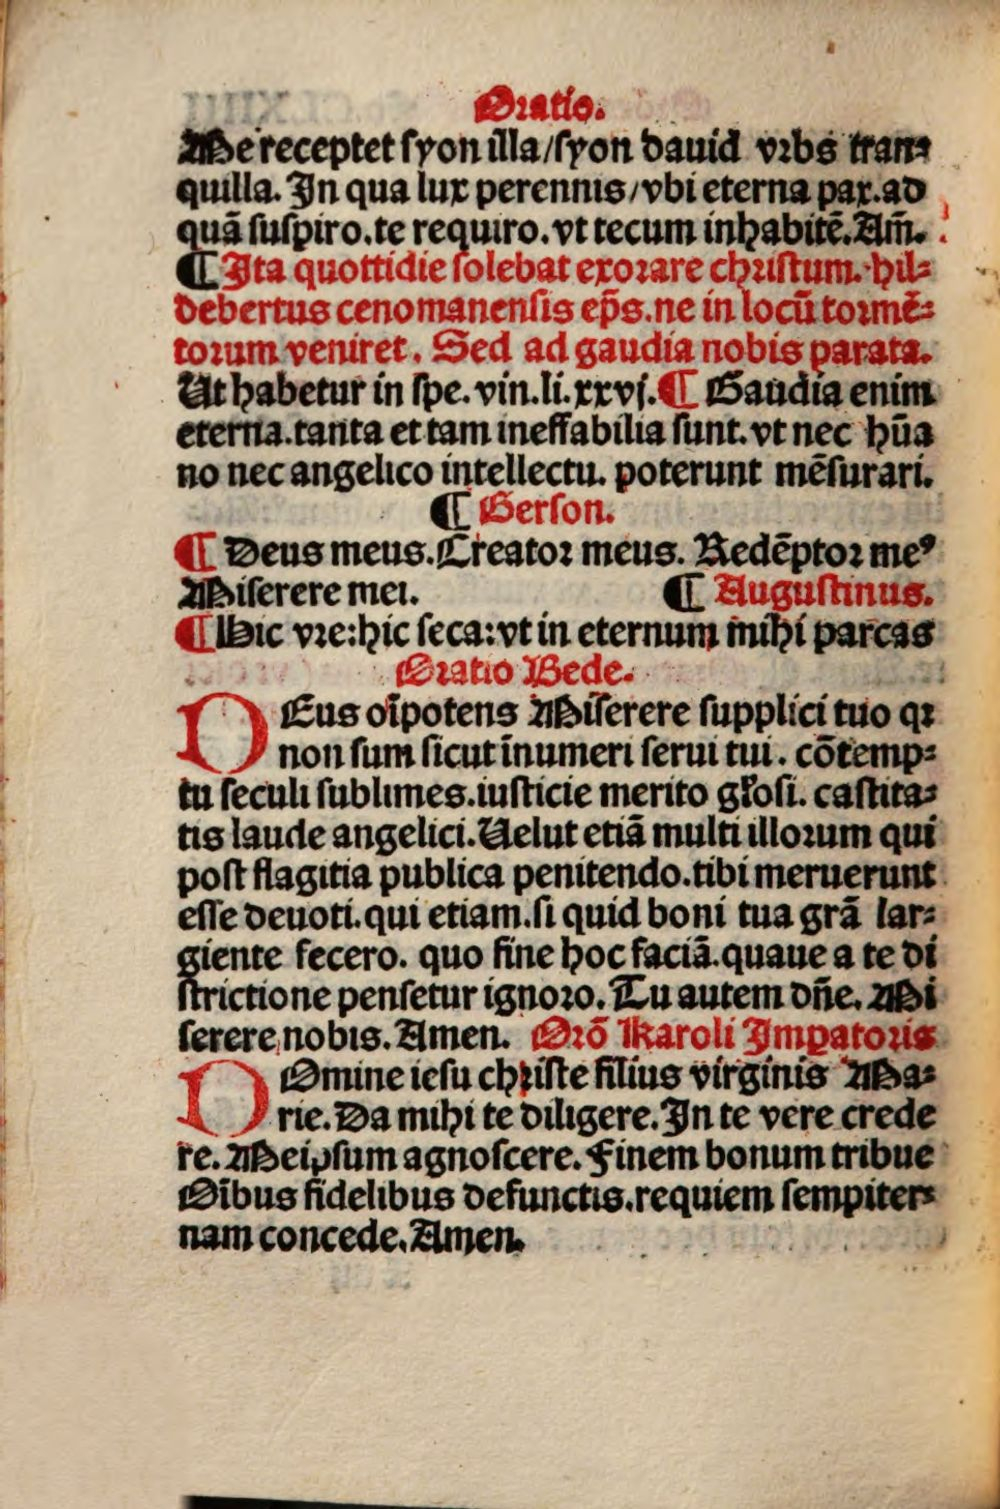 Oratio.
Me receptet syon illa/syon dauid vrbs tran⸗
quilla. In qua lux perennis/vbi eterna pax.ad
quā suspiro.te requiro.vt tecum inhabitē.Am̄.
¶ Ita quottidie solebat exorare christum. hil⸗
debertus cenomanensis ep̄s.ne in locū tormē⸗
torum veniret. Sed ad gaudia nobis parata.
Ut habetur in spe.vin.li.xxvj.¶ Gaudia enim
eterna.tanta et tam ineffabilia sunt.vt nec hūa
no nec angelico intellectu. poterunt mēsurari.
¶ Gerson.
¶ Deus meus.Creator meus. Redēptor meꝰ
Miserere mei. ¶ Augustinus.
¶ Hic vre:hic seca:vt in eternum mihi parcas
Oratio Bede.
DEus oīpotens Miserere supplici tuo qꝛ
non sum sicut īnumeri serui tui. cōtemp⸗
tu seculi sublimes.iusticie merito gl̄osi. castita⸗
tis laude angelici.Uelut etiā multi illorum qui
post flagitia publica penitendo.tibi meruerunt
esse deuoti.qui etiam.si quid boni tua grā lar⸗
giente fecero. quo fine hoc faciā.quaue a te di
strictione pensetur ignoro. Tu autem dn̄e. Mi
serere nobis. Amen. Orō Karoli Impatoris
DOmine iesu christe filius virginis Ma⸗
rie.Da mihi te diligere.In te vere crede
re. Meipsum agnoscere. Finem bonum tribue
Oībus fidelibus defunctis.requiem sempiter⸗
nam concede.Amen.